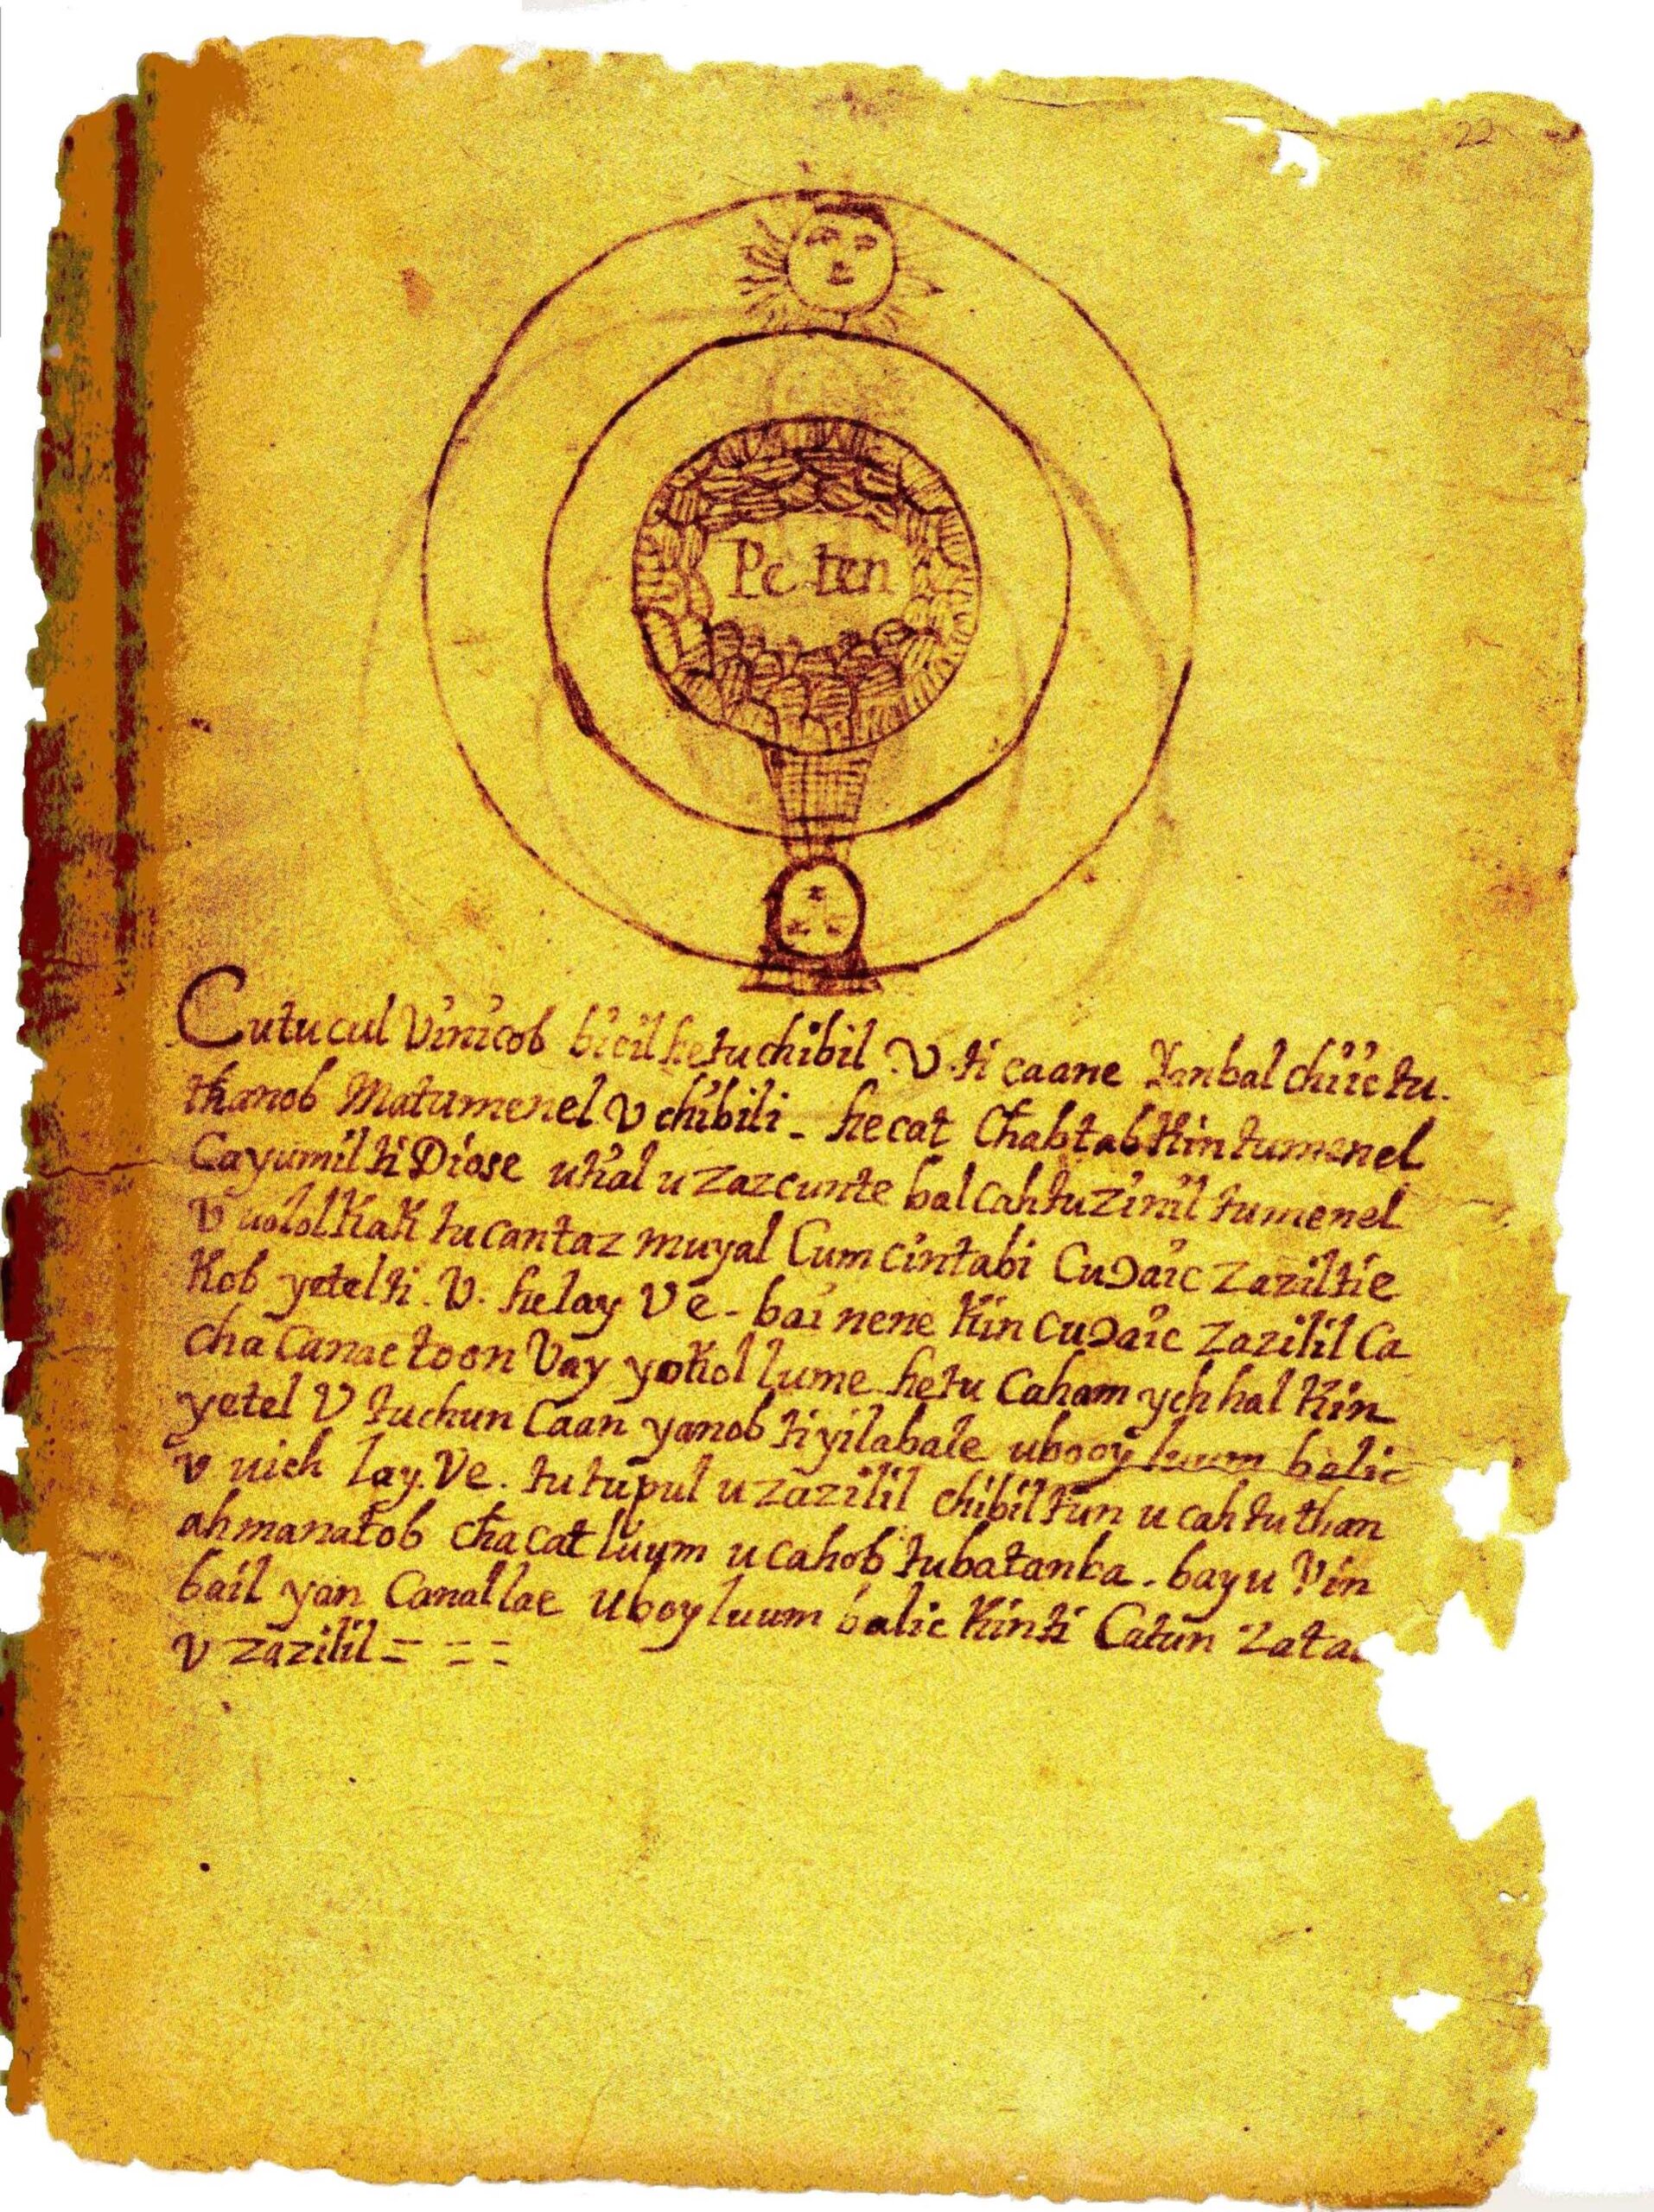 22
Peten
Cutucul Vinicob bicil hetu chibil V. ti caane Yanbal chiictu.
thanob Matumenel V chibili - hecat Chabtab Kin tumenel
Cayumil ti Diose uhal u zazcunte bal cahtuzinil tumenel
V uolol Kak tu cantaz muyal Cumcintabi Cuɔaic Zaziltie
Kob yetel ti. V. helay Ve - bai nene Kin Cuɔaic Zazilil Ca
cha Canac toon Vay yokol lume hetu Caham ychhal Kin
yetel V tuchun Caan yanob tiyilabale ubooy luum balic
v uich lay. Ve. tu tupul u zazilil chibil tun u cah tu than
ahmanatob cha cat luum u cahob tubatanba. bay u Vin
bail yan Canal lae Uboy luum balic Kin ti Catun
V zazilil = = =